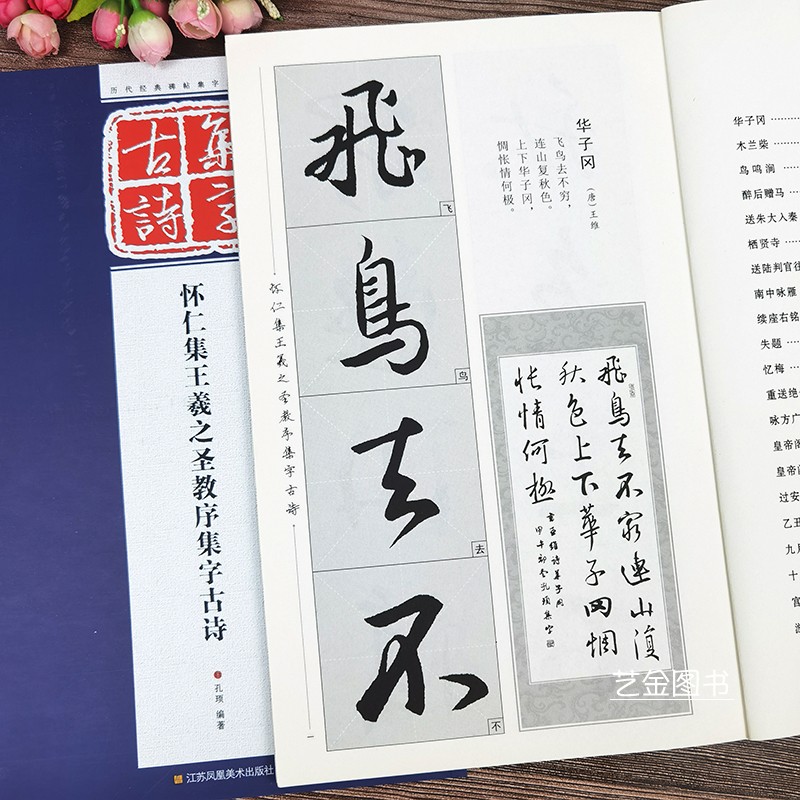 历代经典碑帖集字
集字
古詩
怀仁集王羲之圣教序集字古诗
孔琐 编著
江苏凤凰美术出版社
怀仁集王羲之圣教序集字古诗
飛
飞
鳥
鸟
去
去
不
不
一
华子冈
（唐）王维
飞鸟去不穷，
连山复秋色。
上下华子冈，
惆怅情何极。
飛鳥去不窮連山復
秋色上下華子岡惆
悵情何極
华子冈
木兰柴
鸟鸣涧
醉后赠马
送朱大入秦
栖贤寺
送陆判官往
南中咏雁
续座右铭
失题
忆梅
重送绝
咏方广
皇帝阁
皇帝阁
过安
乙丑
九月
十
宜
艺金图书